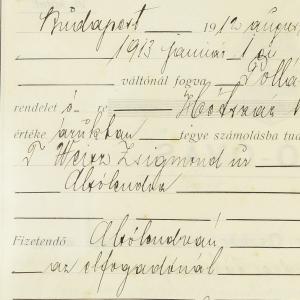 Budapest 1912 augus
1913 január 1 én
váltónál fogva Tóllá
rendelet ó- re Hatszáz
értéke árukban tegye számolásba tud
T Weisz Zsigmond úr
Alsólendva
Fizetendő Alsólendván
az elfogadónál